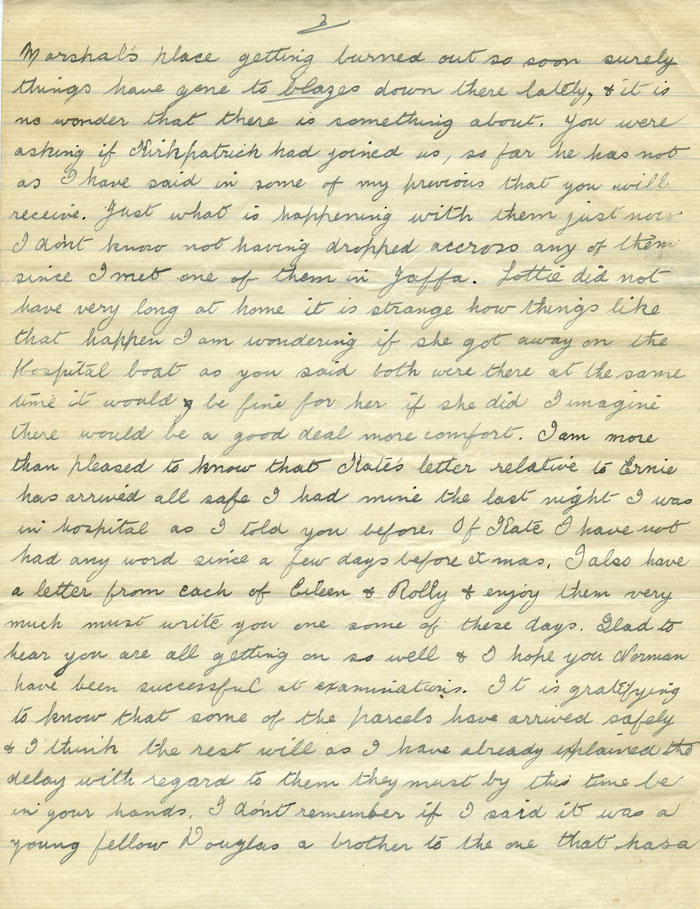 2
Marshal's place getting burned out so soon surely
things have gone to blazes down there lately, & it is
no wonder that there is something about. You were
asking if Kirkpatrick had joined us, so far he has not
as I have said in some of my previous that you will
receive. Just what is happening with them just now
I don't know not having dropped accross any of them
since I met one of them in Jaffa. Lottie did not
have very long at home it is strange how things like
that happen I am wondering if she got away on the
Hospital boat as you said both were there at the same
time it would be fine for her if she did I imagine
there would be a good deal more comfort. I am more
than pleased to know that Kate's letter relative to Ernie
has arrived all safe I had mine the last night I was
in hospital as I told you before. Of Kate I have not
had any word since a few days before Xmas. I also have
a letter from each of Eileen & Rolly & enjoy them very
much must write you one some of these days. Glad to
hear you are all getting on so well & I hope you Norman
have been successful at examinations. It is gratifying
to know that some of the parcels have arrived safely
& I think the rest will as I have already explained the
delay with regard to them they must by this time be
in your hands. I don't remember if I said it was a
young fellow Douglas a brother to the one that has a